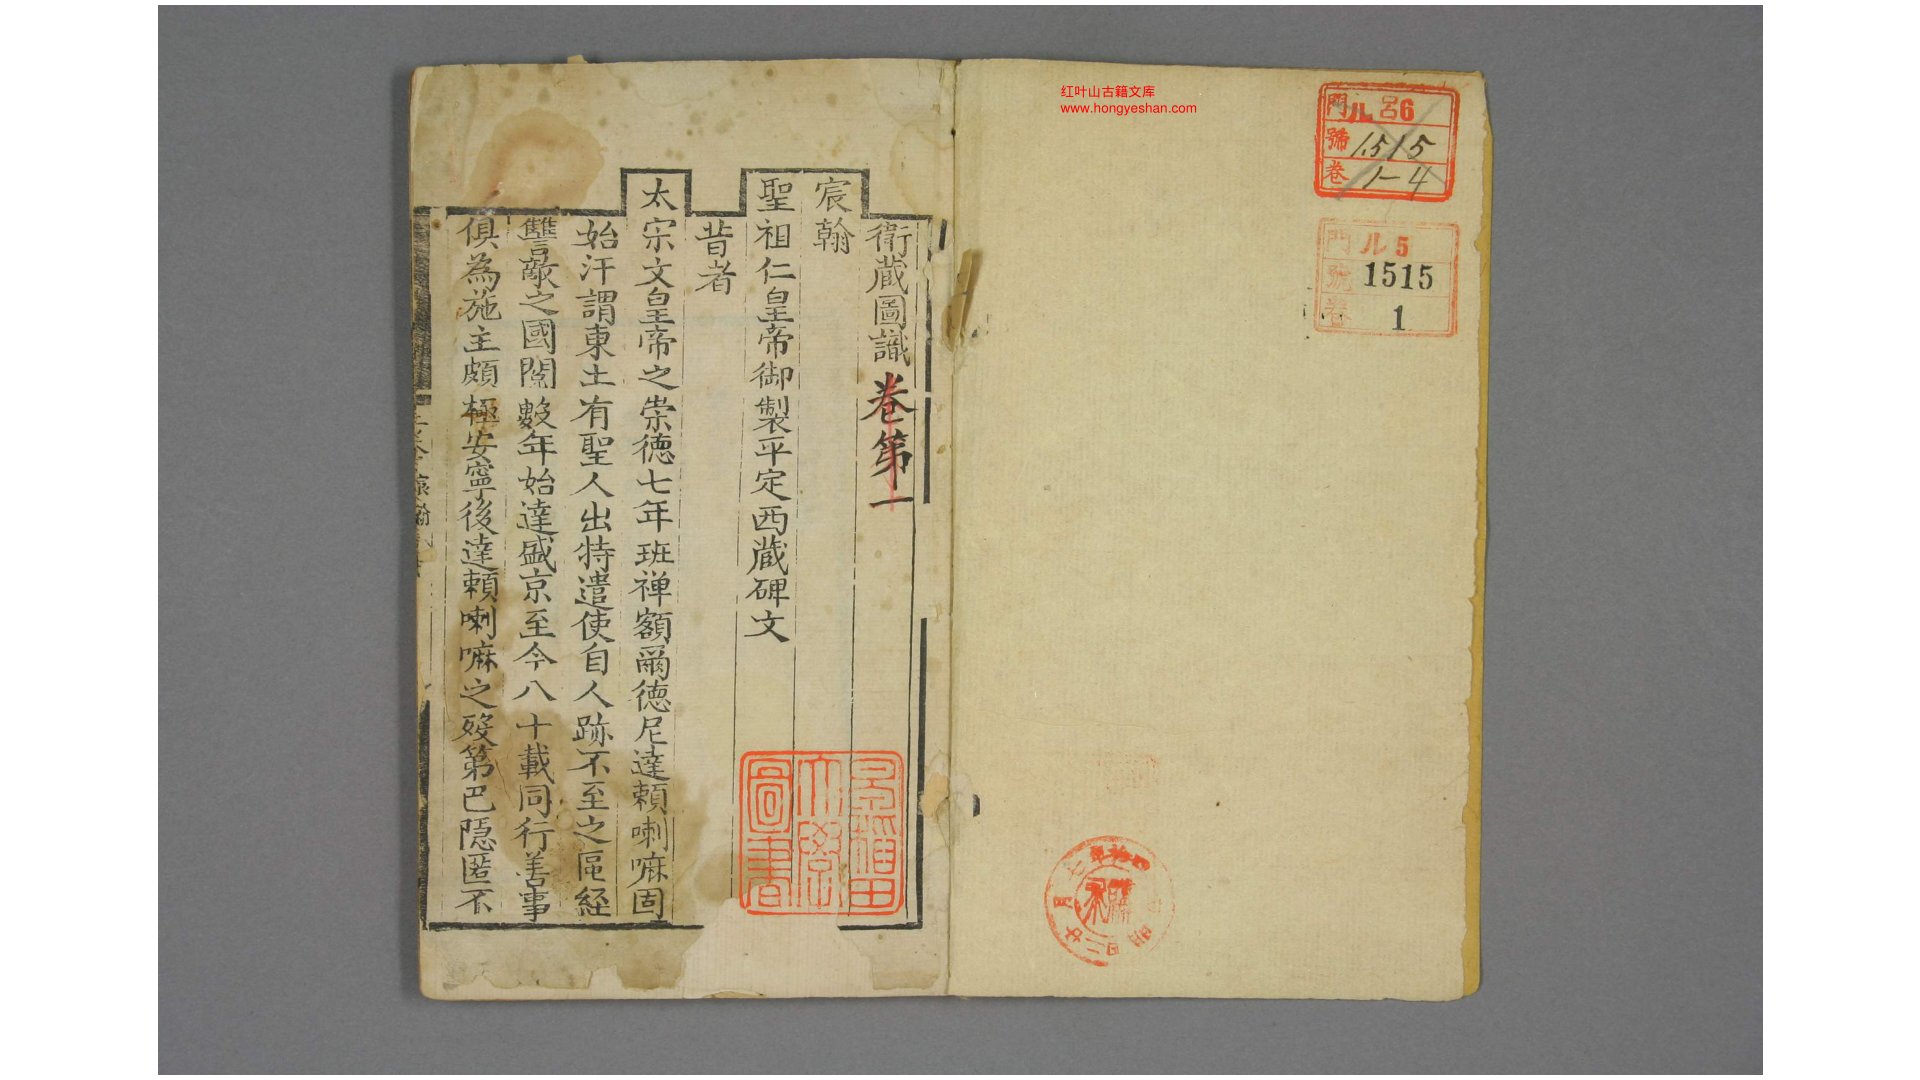 红叶山古籍文库
www.hongyeshan.com
門 ル 呂6
號 1515
卷 1-4
門 ル 5
號 1515
卷 1
衛藏圖識卷第一
宸翰
聖祖仁皇帝御製平定西藏碑文
昔者
太宗文皇帝之崇德七年班禪額爾德尼達賴喇嘛固
始汗謂東土有聖人出特遣使自人跡不至之區經
讐敵之國閱數年始達盛京至今八十載同行善事
俱為施主頗極安寧後達賴喇嘛之歿第巴隱匿不
早稲田
大學
圖書